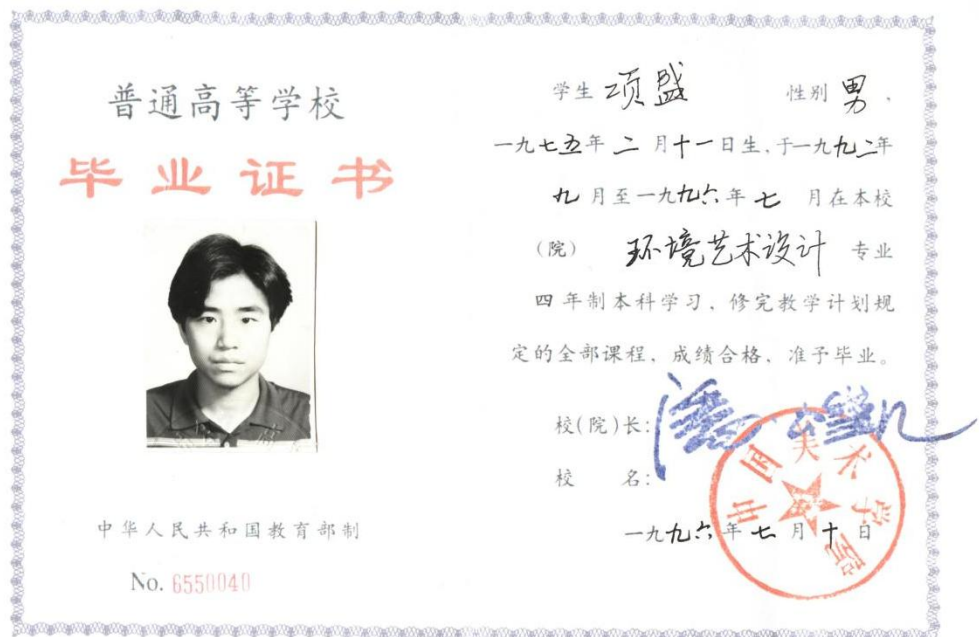 普通高等学校
毕业证书
中华人民共和国教育部制
No. 6550040
学生 项盛 性别 男 .
一九七五年 二 月十一日生,于一九九二年
九 月至一九九六年 七 月在本校
(院) 环境艺术设计 专业
四 年制本科学习、修完教学计划规
定的全部课程、成绩合格、准予毕业。
校(院)长:
校 名:
中国美术学院
一九九六年 七 月 十 日